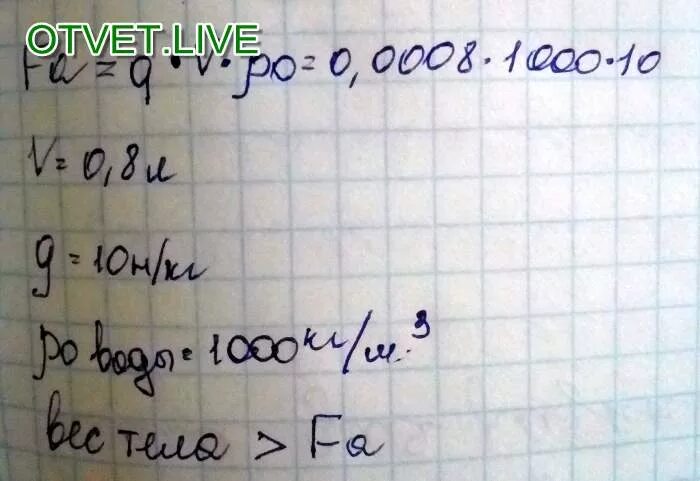 OTVET.LIVE
Fa = g · V · ро = 0,0008 · 1000 · 10
V = 0,8 л
g = 10 н/кг
ро воды = 1000 кг/м³
вес тела > Fa